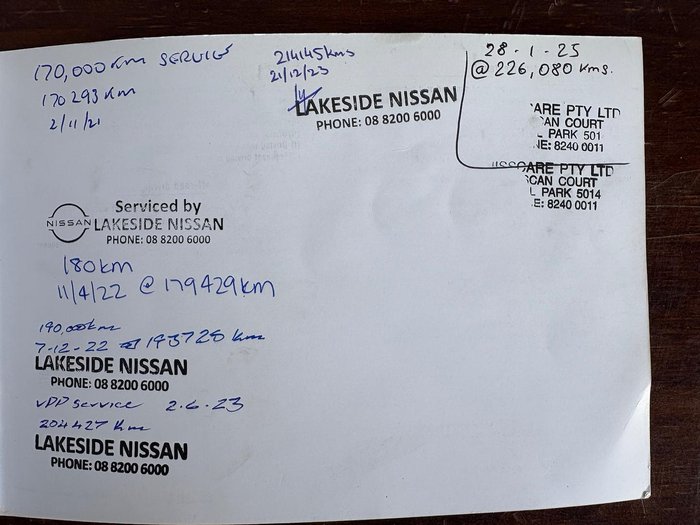 170,000 KM SERVICE
170293 KM
2/11/21
NISSAN
Serviced by
LAKESIDE NISSAN
PHONE: 08 8200 6000
180km
11/4/22 @ 179429km
190,000km
7-12-22 @ 193728 km
LAKESIDE NISSAN
PHONE: 08 8200 6000
service 2.6.23
204427 Km
LAKESIDE NISSAN
PHONE: 08 8200 6000
214145kms
21/12/23
LAKESIDE NISSAN
PHONE: 08 8200 6000
28-1-25
@ 226,080 kms.
ARE PTY LTD
CAN COURT
L PARK 501
NE: 8240 0011
ARE PTY LTD
SCAN COURT
L PARK 5014
E: 8240 0011